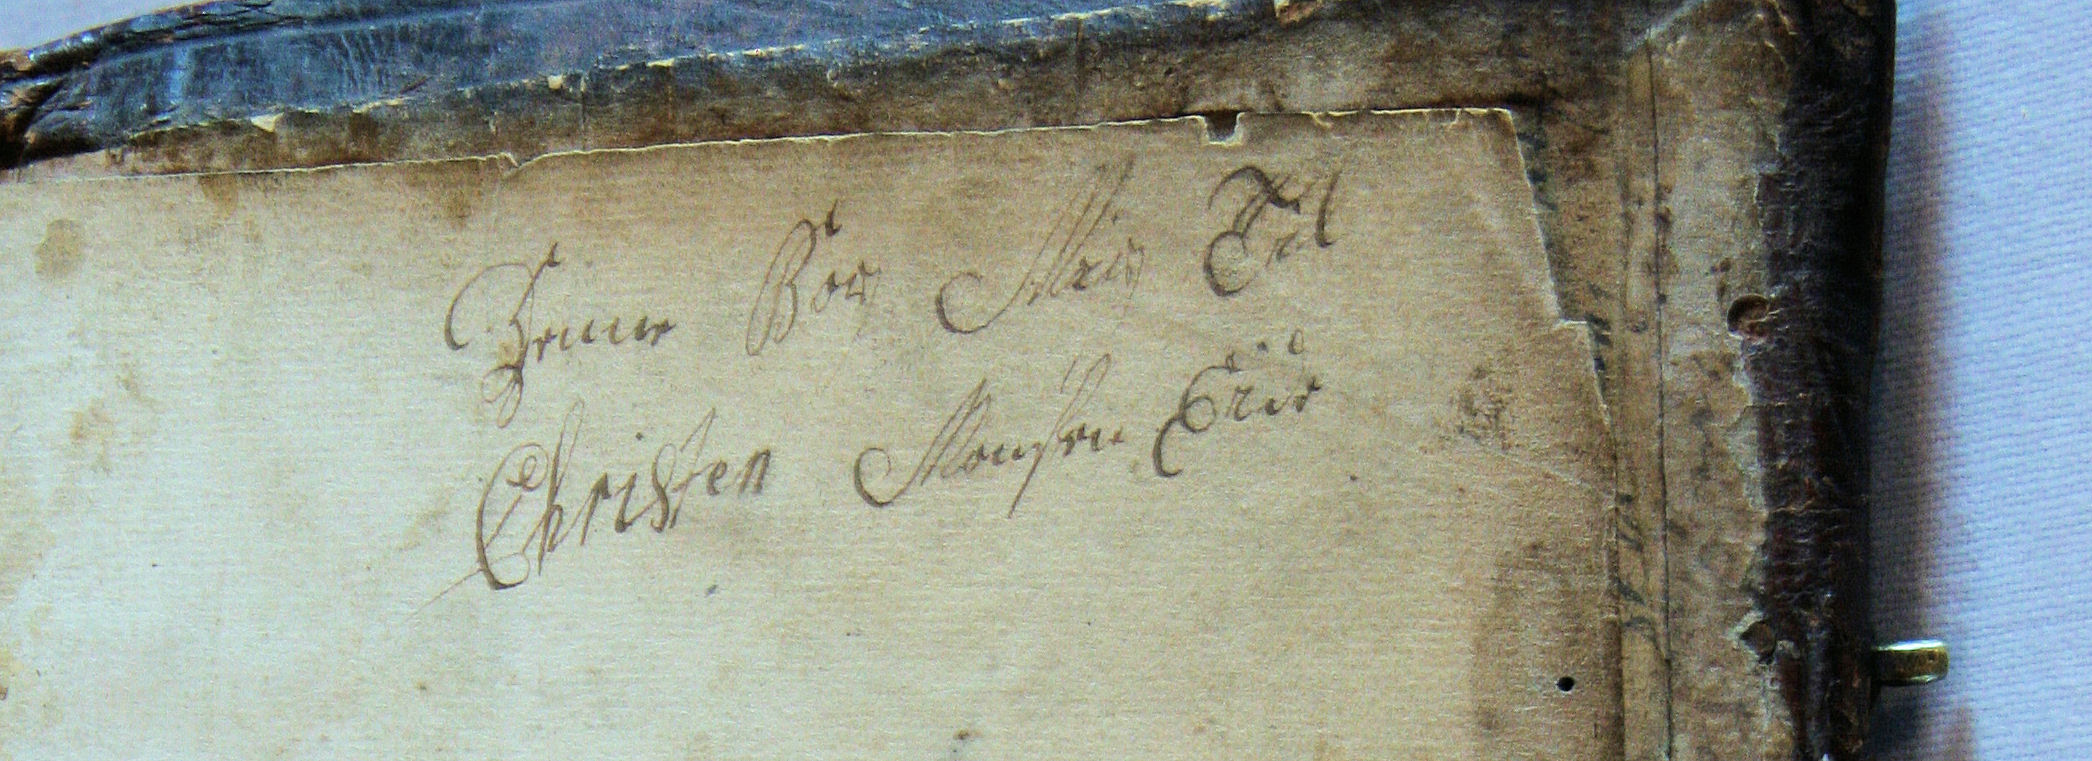 Denne Bog Mig Til
Christen Monsen Eide